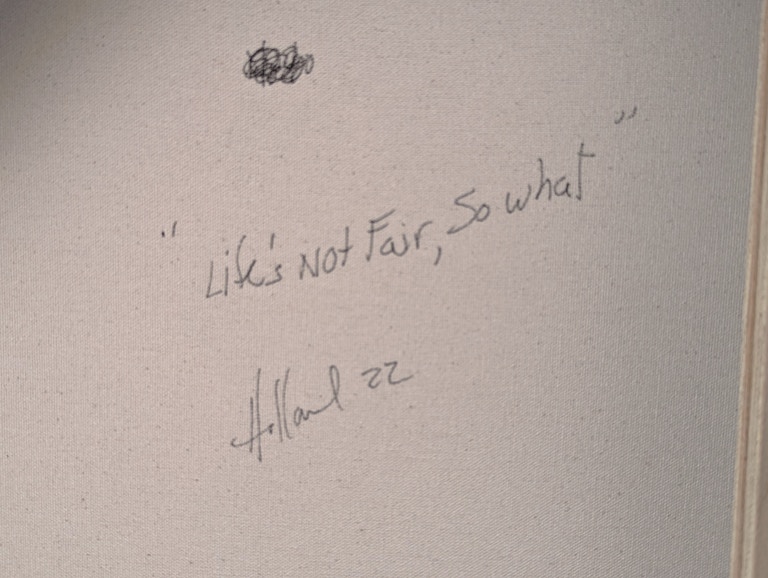 "Life's Not Fair, So what"
Holland 22